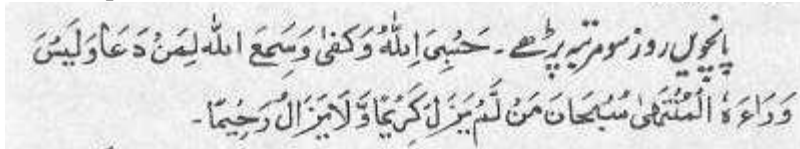 پانچویں روز سو مرتبہ پڑھے۔ حَسْبِیَ اللّٰهُ وَکَفٰی وَسَمِعَ اللّٰه لِمَنْ دَعَا وَلَیْسَ
وَرَاءَهُ الْمُنْتَهٰی سُبْحَانَ مَنْ لَّمْ یَزَلْ کَرِیْمًا وَّلَا یَزَالُ رَحِیْمًا۔